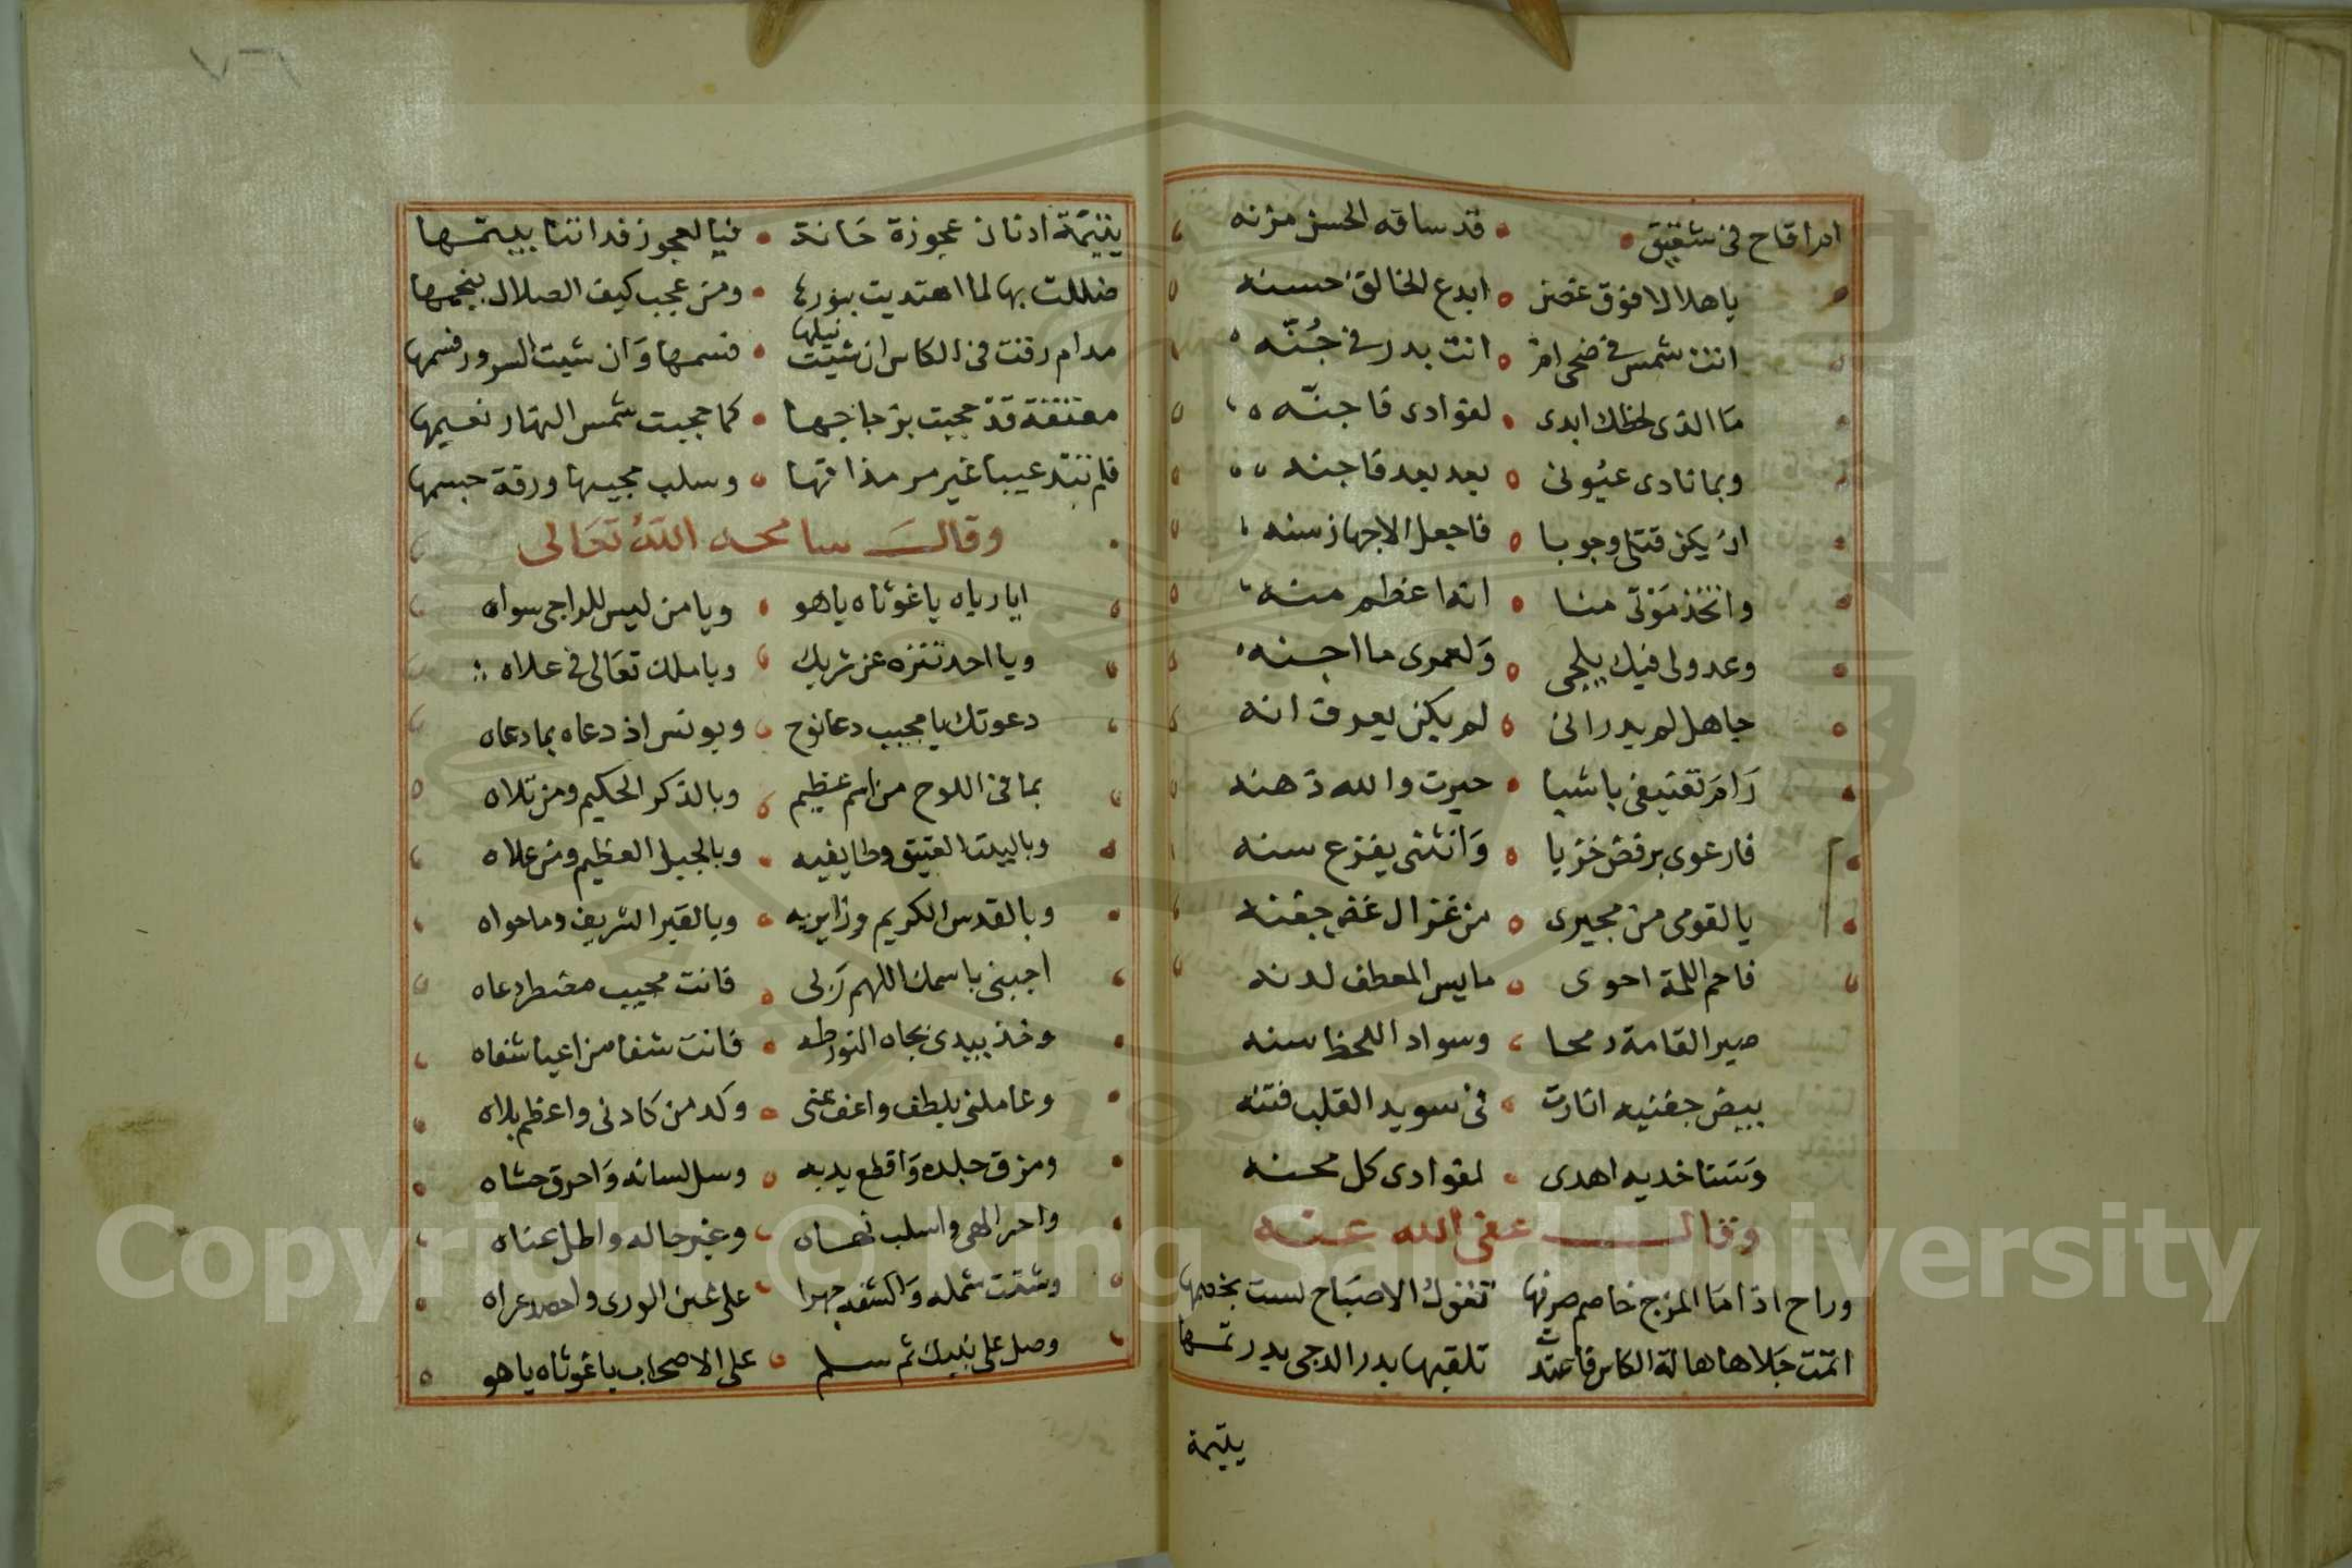 ام اقاح في شقيق قد ساقه الحسن مزنه
يا هلالا فوق غصن ابدع الخالق حسنه
انت شمس في ضحى ام انت بدر في جُنّه
ما الذي لحظك ابدى لفوادي فاجنّه
وبما نادى عيُوني بعد بعد فاجنه
ان يكن قتلي وجوبا فاجعل الاجهاز سنه
واتخذ مَوْتي منا انها اعظم منه
وعدولي فيك يلحى وَلعمري ما اجنه
جاهل لم يدر اني لم يكن يعرف انه
رَامَ تعنيفي باشيا حيرت والله ذهنه
فارعوى برفض خزيا وَانثنى يفزع سنه
يالقومي من مجيرى من غزال غض جفنه
فاحم اللمة احوى مايس المعطف لدنه
صير القامة رمحا وسواد اللحظ سنه
ببيض جفنيه اثارت في سويد القلب فتنه
وَسنا خديه اهدى لفوادى كل محنه
وقال عفى الله عنه
وراح اذا ما المزج خاصم صرفها تفوك الاصبَاح لست بخصمها
اتمت جَلاها هالة الكاس فاعتدت تلقبها بدر الدجى بدر تمها
يتيمة
٧٦
يتيمة ادنان عجوزة حَانة فيا لعجوز قد اتنا بيتمها
ضللت بها لما اهتديت بنورها ومن عجب كيف الضلال بنجمها
مدام رقت في الكاس ان شيت نيلها فسمها وَان شيت السرور فسمها
معتقة قدْ حجبت بزجاجها كما حجبت شمس النهار نعيمها
فلم تبد عيبا غير مر مذاقها وسلب محبيها ورقة جسمها
وقال سامحه اللهُ تعَالى
ايا رباه يا غوثاه ياهو ويا من ليس للراجي سواه
ويا احد تنزه عن شريك ويا ملك تعَالى في علاه
دعوتك يا مجيب دعا نوح ويونس اذ دعاه بما دعاه
بما في اللوح من اسم عظيم وبالذكر الحكيم ومن تلاه
وبالبيت العتيق وطايفيه وبالجبل العظيم ومن علاه
وبالقدس الكريم وزايريه وبالقبر الشريف وما حواه
اجبني باسمك اللهم رَبي فانت مجيب مضطر دعاه
وخذ بيدى بجاه النور طه فانت شفا من اعيا شفاه
وعاملني بلطف واعف عني وكد من كادني واعظم بلاه
ومزق جلده وَاقطع يديه وسل لسانه وَاحرق حشاه
واحر الهي واسلب نهاه وغير حاله واطل عناه
وشتت شمله وَاكشفه جهرا على عين الورى عراه
وصل على نبيك ثم سلم على الاصحاب يا غوثاه ياهو
Copyright © King Saud University